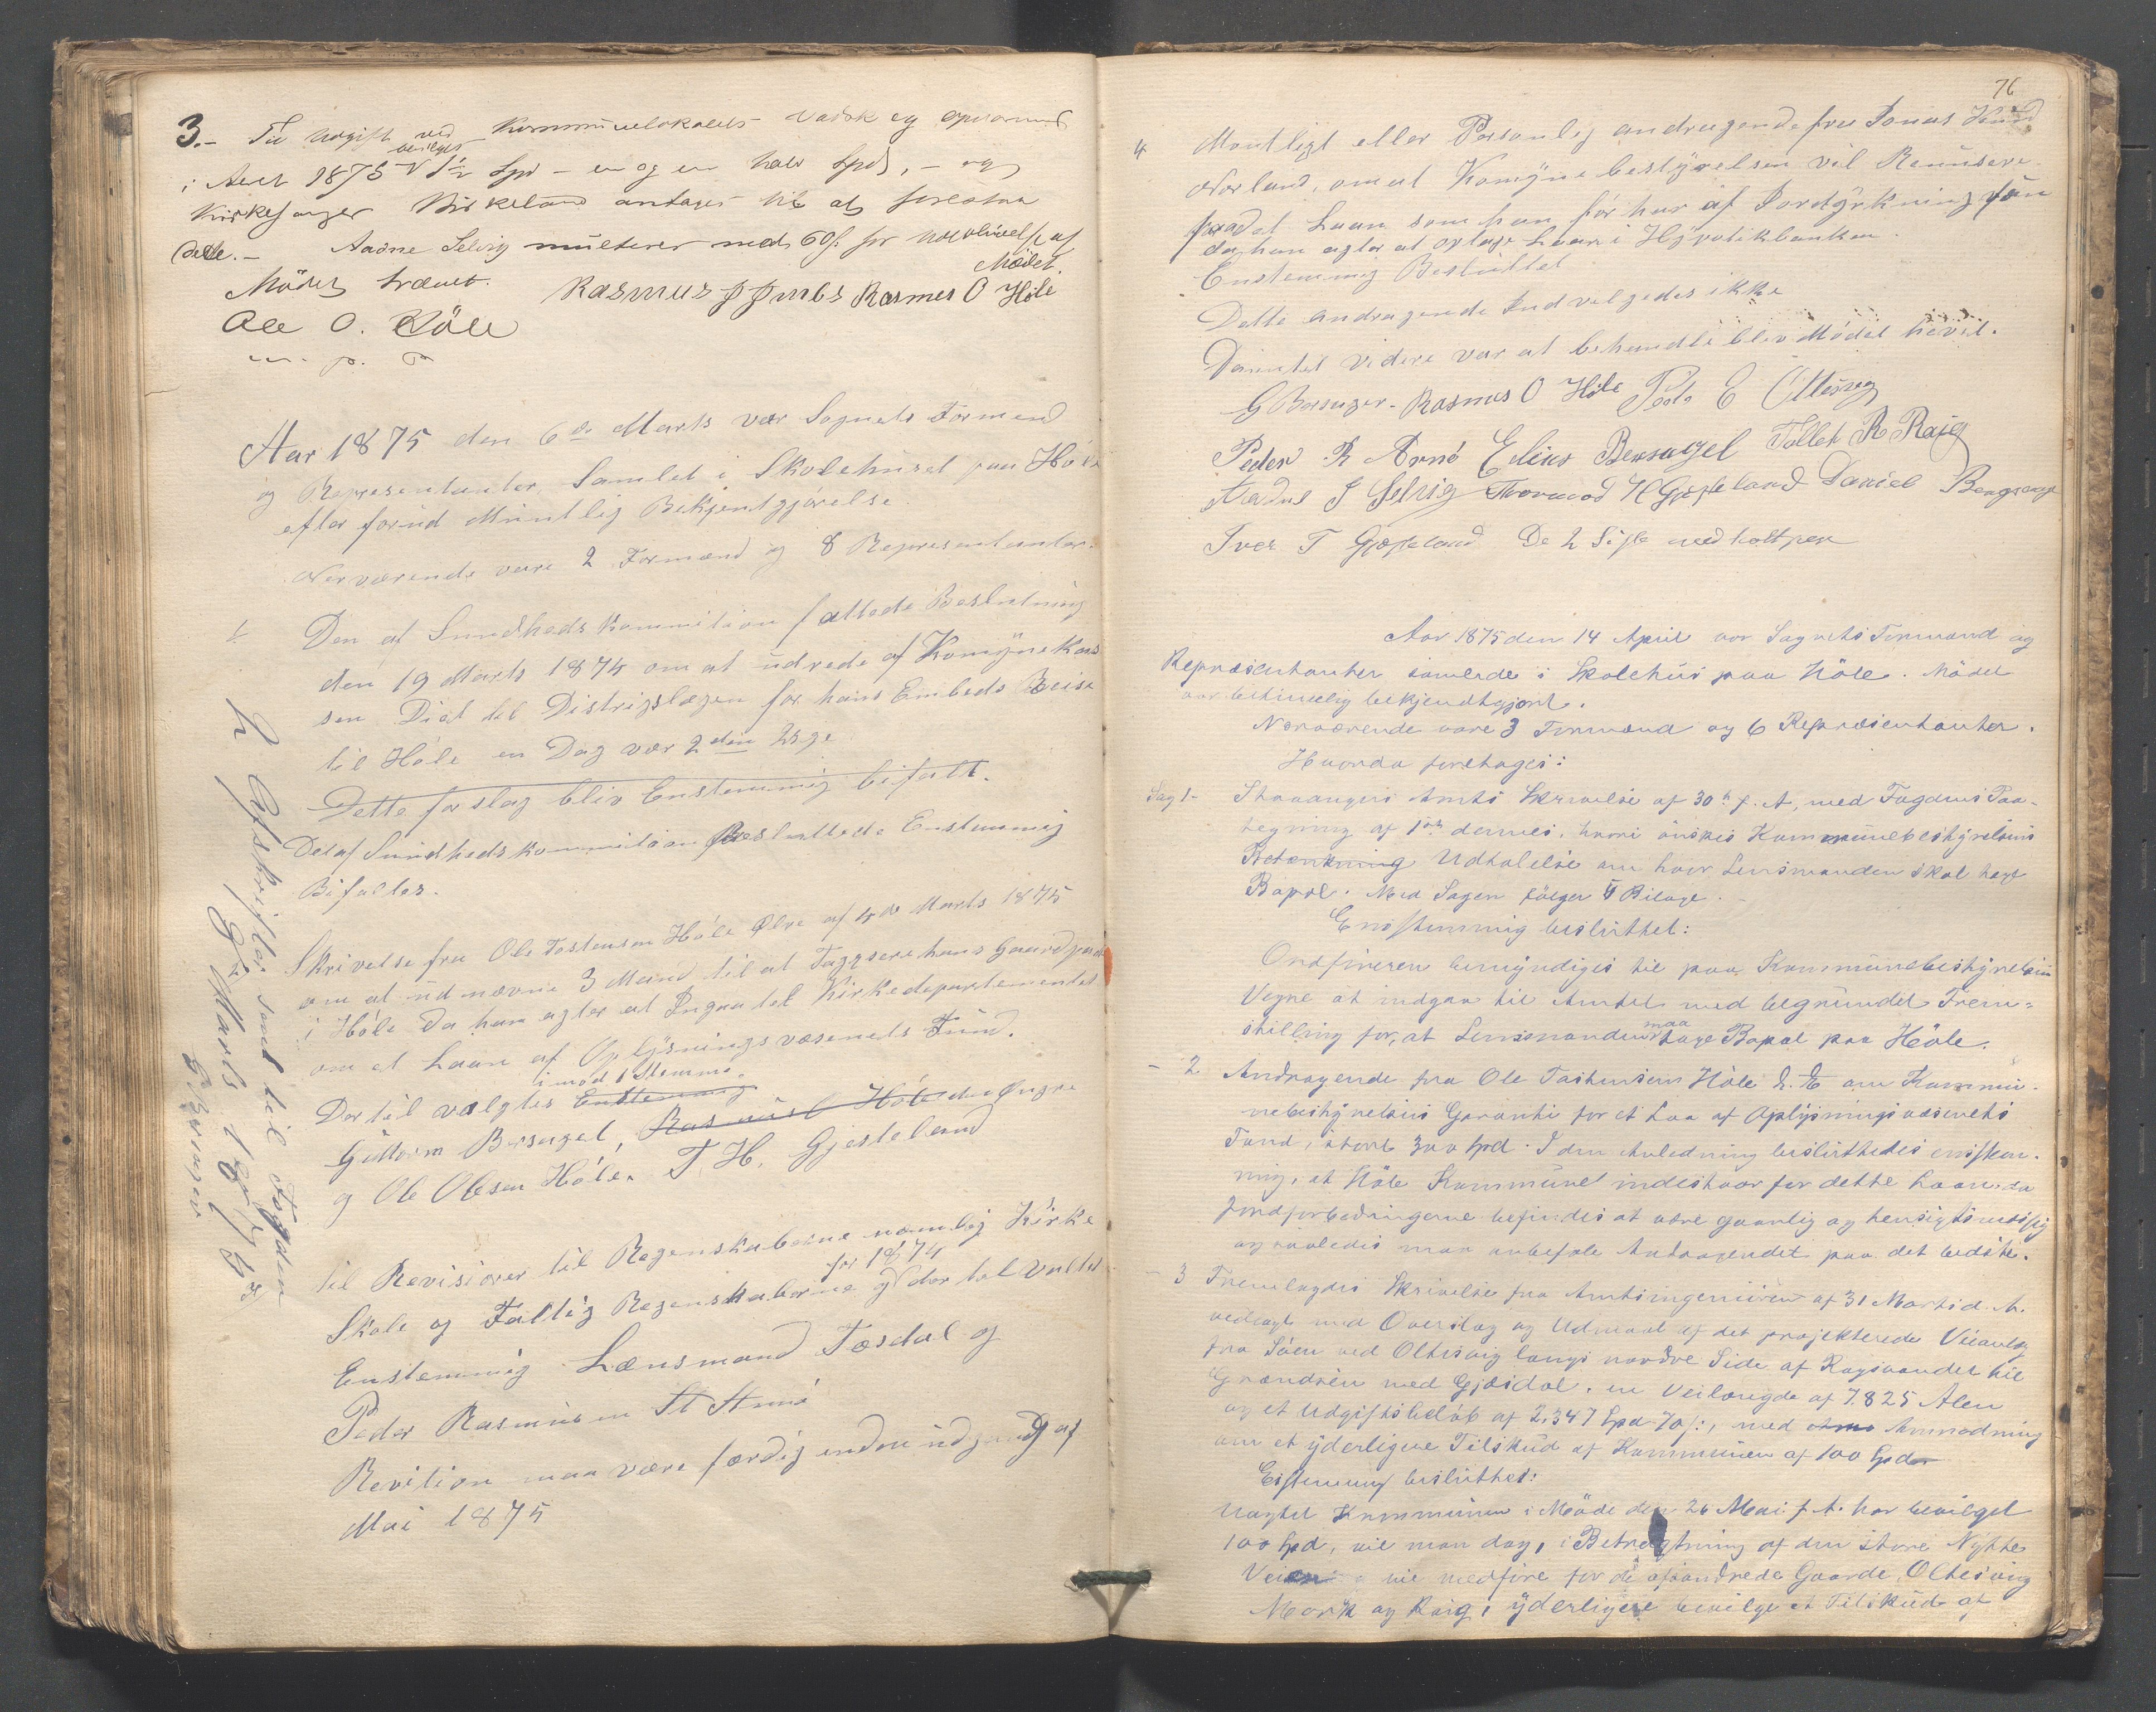 3.- Til Udgift ved Kommunelokalets Vadsk og
i Aaret 1875 bevilges 1½ Spd - en og en halv Spd, - og
Kirkesanger Birkeland antages til at forestaa
dette. - Aadne Selvig mulkteres med 60 s. for Udeblivelse af
Mødet.
Mödet hævet. Rasmus Rasmus O Høle
Ole O. Höle
m. p. P
Aar 1875 den 6de Marts var Sognets Formend
og Representanter Samlet i Skolehuset paa Høle
efter forud Muntlig Bekjentgjørelse.
Nerværende vare 2 Formænd og 8 Representanter.
1 Den af Sundhedskommition fattede Beslutning
den 19 Marts 1874 om at udrede af Komynekas
sen Diæt til Distrigslægen for hans Embeds Reise
til Høle en Dag vær 2den Uge
Dette forslag bliv Enstemmig bifalt.
Det af Sundhedskommition Besluttede Enstemmig
Bifaltes.
Skrivelse fra Ole Tostensen Høle Øvre af 4de Marts 1875
om at udnævne 3 Mænd til at Taggsere hans Gaardpart
i Høle Da han agter at Ingaa til Kirkedepartementet
om et Laan af Oplysningsvæsenets Fund.
imod 1 Stemme
Der til valgtes Enstemmig
Guttorm Bersagel, Rasmus Høle den Øngre
og Ole Olesen Høle. T. H. Gjesteland
til Revisiorer til Regenskaberne namlig Kirke
for 1874
Skole og Fattig Regenskaberne og der til Valtes
Enstemmig Lænsmand Tæsdal og
Peder Rasmusen Arnø
Revition maa være færdig inden udgang af
Mai 1875
2 Afskrifter sent til Fogden
9de Marts 1875
G Bersagel
76
4 Muntligt eller Personlig andragende fra Jonas
Norland, om at Komynebestyrelsen vil
paa det Laan som han før har af Jordyrkning fon
da han agter at optage Laan i Hypotikbanken.
Enstemmig Besluttet
Dette andragende Indvelgedes ikke
Daintet videre var at behandle blev Mødet hævet.
G Bersagel. Rasmus O Høle Peder E Oltesvig
Peder R Arnø Elius Bersagel Tollek R Raig
Aadne J Selvig Thormod H Gjesteland Daniel Bersagel
Iver T Gjesteland De 2 Siste med holt pen
Aar 1875 den 14 April var Sognets Formænd og
Repræsentanter samlede i Skolehus paa Höle. Mödet
var betimelig bekjendtgjort.
Nærværende vare 3 Formænd og 6 Repræsentanter.
Hvorda foretages:
Sag 1- Stavangers Amts Skrivelse af 30te f. A, med Fogdens Paa-
tegning af 1ste dennes, hvori önskes Kommunebestyrelsens
Betænkning Udtalelse om hvor Lensmanden skal have
Bopæl. Med Sagen fölger 4 Bilage.
Enstemmig besluttet:
Ordföreren bemyndiges til paa Kommunebestyrelsens
Vegne at indgaa til Amtet med begrundet Frem-
stilling for, at Lensmanden maa tage Bopæl paa Höle.
- 2 Andragende fra Ole Tostensen Höle om Kommu-
nebestyrelsens Garanti for et Laan af Oplysningsvæsenets
Fond, stort 300 Spd. I den Anledning besluttedes enstem-
mig, at Höle Kommune indestaar for dette Laan, da
Jordforbedringerne befindes at være gavnlig og hensigtsmæssig
og saaledes maa anbefale Andragendet paa det bedste.
- 3 Fremlagdes Skrivelse fra Amtsingeniören af 31 Marts d. A.
vedlagt med Overslag og Udmaal af det projekterede Veianlæg
fra Söen ved Oltesvig langs nordre Side af Ragsvandet til
Grændsen med Gjesdal, en Veilængde af 7.825 Alen
og et Udgiftsbelöb af 2,347 Spd 70 s:, med Anmodning
om et yderligere Tilskud af Kommunen af 100 Spd
Enstemmig besluttet:
Uagtet Kommunen i Möde den 26 Mai f. A. har bevilget
100 Spd, vil man dog, i Betragtning af den store Nytte
Veien vil medføre for de afsondrede Gaarde, Oltesvig
Mork og Raig, yderligere bevilge et Tilskud af